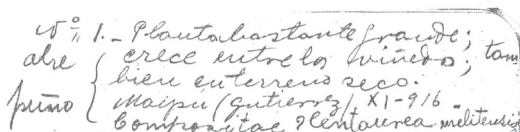 Nº 1. - Planta bastante grande;
crece entre los viñedos; tam
bien en terreno seco.
Maipu (Gutierrez) XI-916 -
Compositae ? Centaurea melitensis